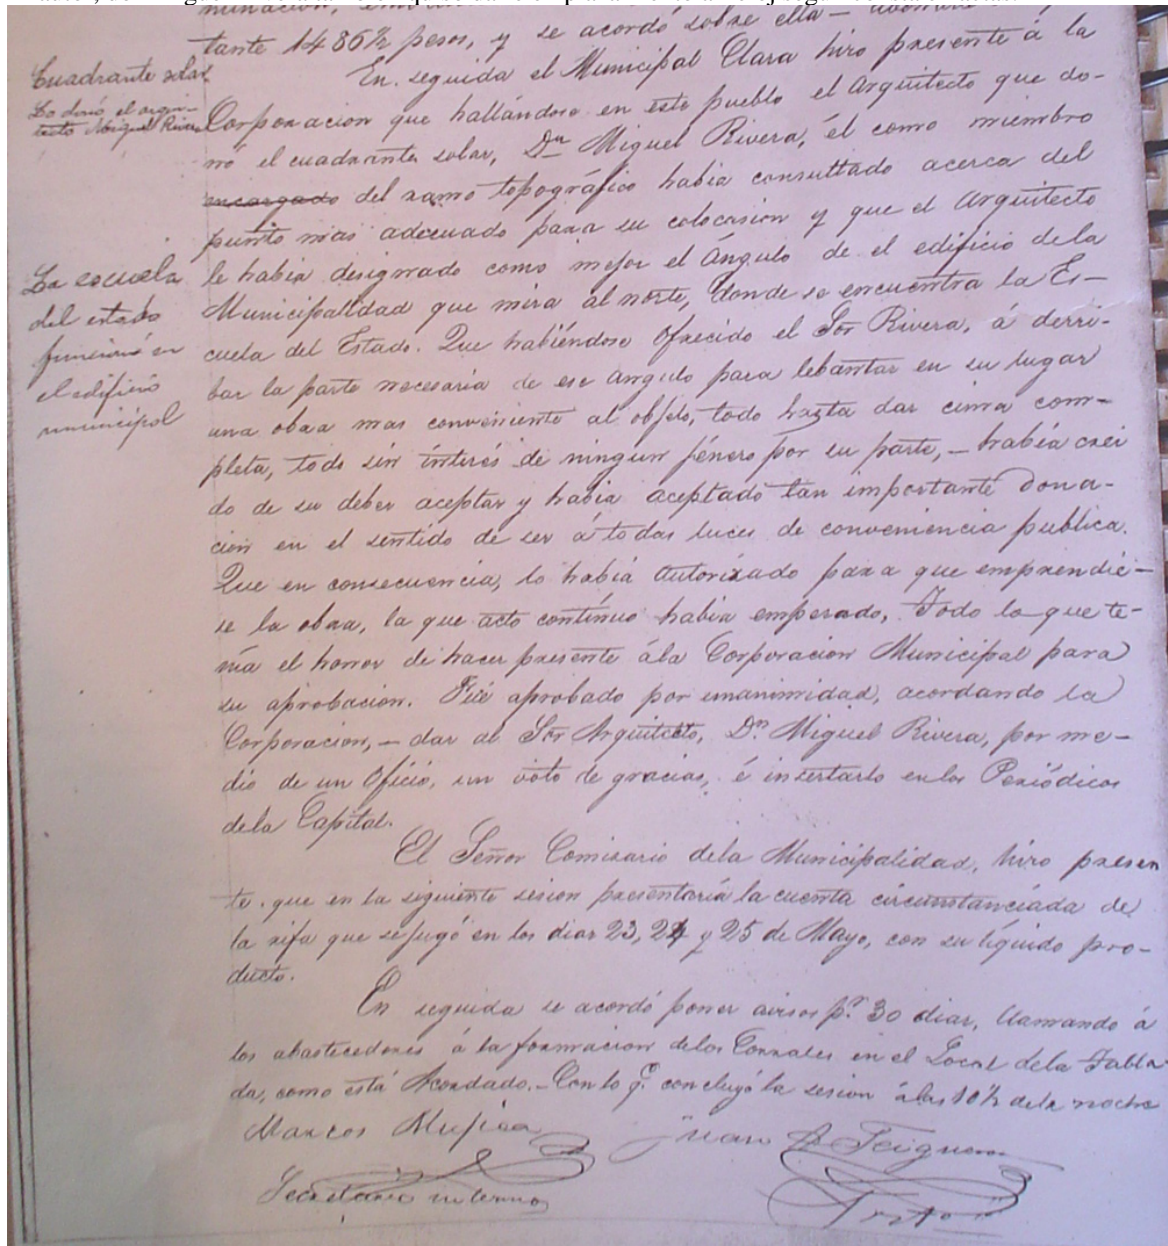 tante 1486½ pesos, y se acordó sobre ella —
Cuadrante solar
Lo donó el arqui-
tecto Miguel Rivera
En seguida el Municipal Clara hizo presente á la
Corporacion que hallándose en este pueblo el Arquitecto que do-
nó el cuadrante solar, Dn Miguel Rivera, él como miembro
encargado del ramo topográfico habia consultado acerca del
punto mas adecuado para su colocasion y que el Arquitecto
le habia designado como mejor el Ángulo de el edificio de la
Municipalidad que mira al norte, donde se encuentra la Es-
cuela del Estado. Que habiéndose Ofrecido el Sor Rivera, á derri-
bar la parte necesaria de ese angulo para lebantar en su lugar
una obra mas conveniente al objeto, todo hasta dar cima com-
pleta, todo sin interés de ningun jénero por su parte, — habia crei
do de su deber aceptar y habia aceptado tan importante dona-
cion en el sentido de ser á todas luces de conveniencia publica.
Que en consecuencia, lo habia autorizado para que emprendie-
se la obra, la que acto contínuo habia emperado, Todo lo que te-
nia el honor de hacer presente á la Corporacion Municipal para
su aprobacion. Fué aprobado por unanimidad, acordando la
Corporacion, — dar al Sor Arquitecto, Dn. Miguel Rivera, por me-
dio de un Oficio, un voto de gracias, é insertarlo en los Periódicos
de la Capital.
La escuela
del estado
funcionó en
el edificio
municipal
El Señor Comisario de la Municipalidad, hizo presen
te, que en la siguiente sesion presentaría la cuenta circunstanciada de
la rifa que se jugó en los dias 23, 24 y 25 de Mayo, con su líquido pro-
ducto.
En seguida se acordó poner avisos pr. 30 dias, llamando á
los abastecedores á la formacion de los Corrales en el Local de la Tabla-
da, como está Acordado. – Con lo q.e concluyó la sesion á las 10½ de la noche
Marcos Mujica
Juan
Secretario interino